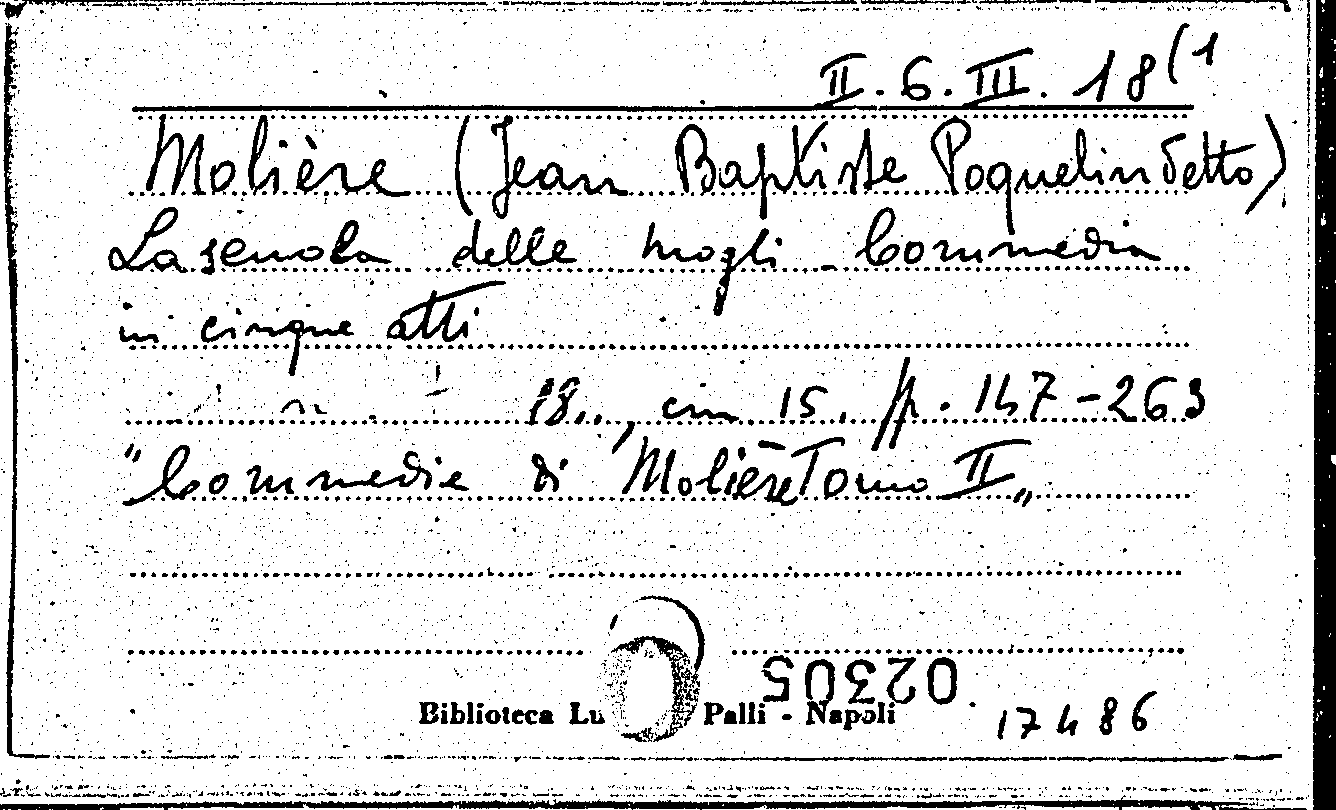 II. 6. III. 18(1
Molière (Jean Baptiste Poquelin detto)
La scuola delle mogli - Commedia
in cinque atti
18.., cm 15. pp. 147-263
"Commedie di Molière Tomo II"
02305
Biblioteca Lu Palli - Napoli
17486